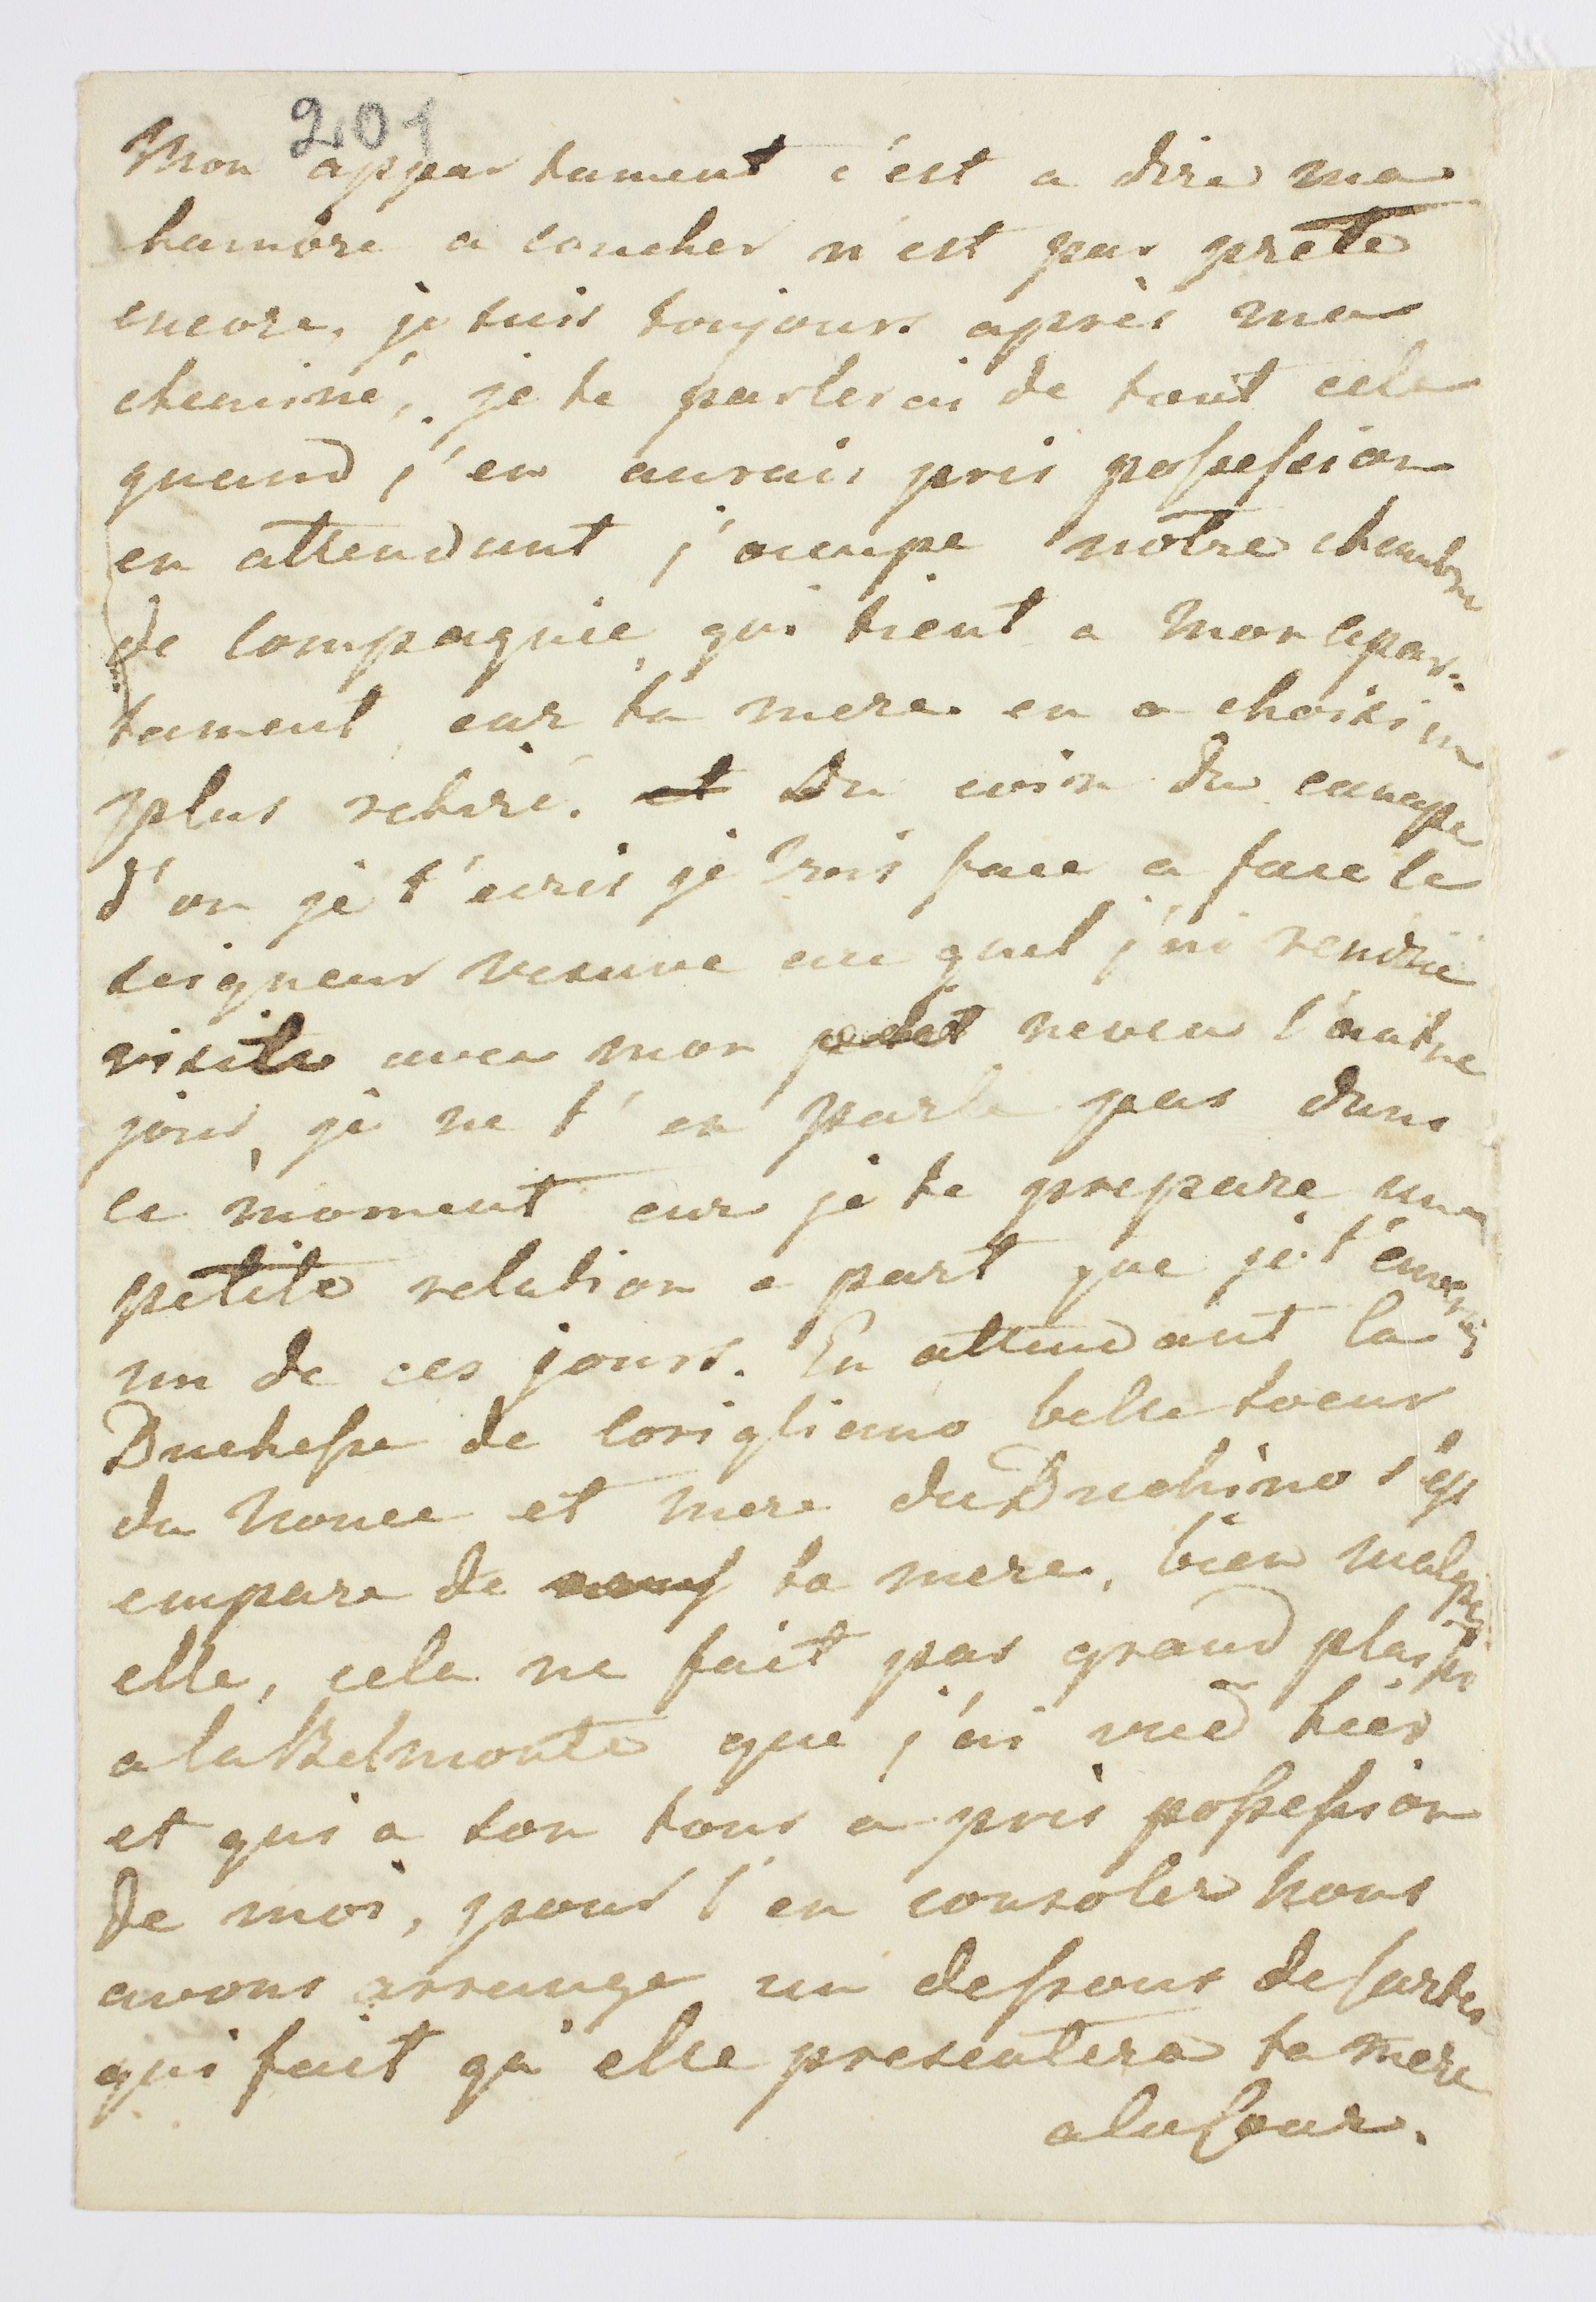 201
Mon appartament c'est a dire ma
hambre a coucher n'est pas prete
encore, je suis toujours après ma
cheminé, je te parlerai de tout cela
quand j'en aurais pris possession
en attendant j'ocupe nôtre chambre
de compagnie, qui tient a mon apar-
tament, car ta mere en a choisi un
plus retiré. et Du coin du canape
d'ou je t'ecris je vois face a face le
seigneur vesuve au quel j'ai rendue
visite avec mon petit neveu l'autre
jour, je ne t'en parle pas dans
ce moment car je te prepare une
petite relation a part que je t'enverai
un de ces jours. En attendant la
Duchesse de Corigliano belle soeur
du nonce et mere du Duchino s'est
empare de ta mere, bien malgré
elle, cela ne fait pas grand plaisir
a la Belmonte que j'ai vue hier
et qui a son tour a pris possession
de moi, pour l'en consoler nous
avons arrange un dessous de cartes
qui fait qu'elle presentera ta mere
a la Cour.